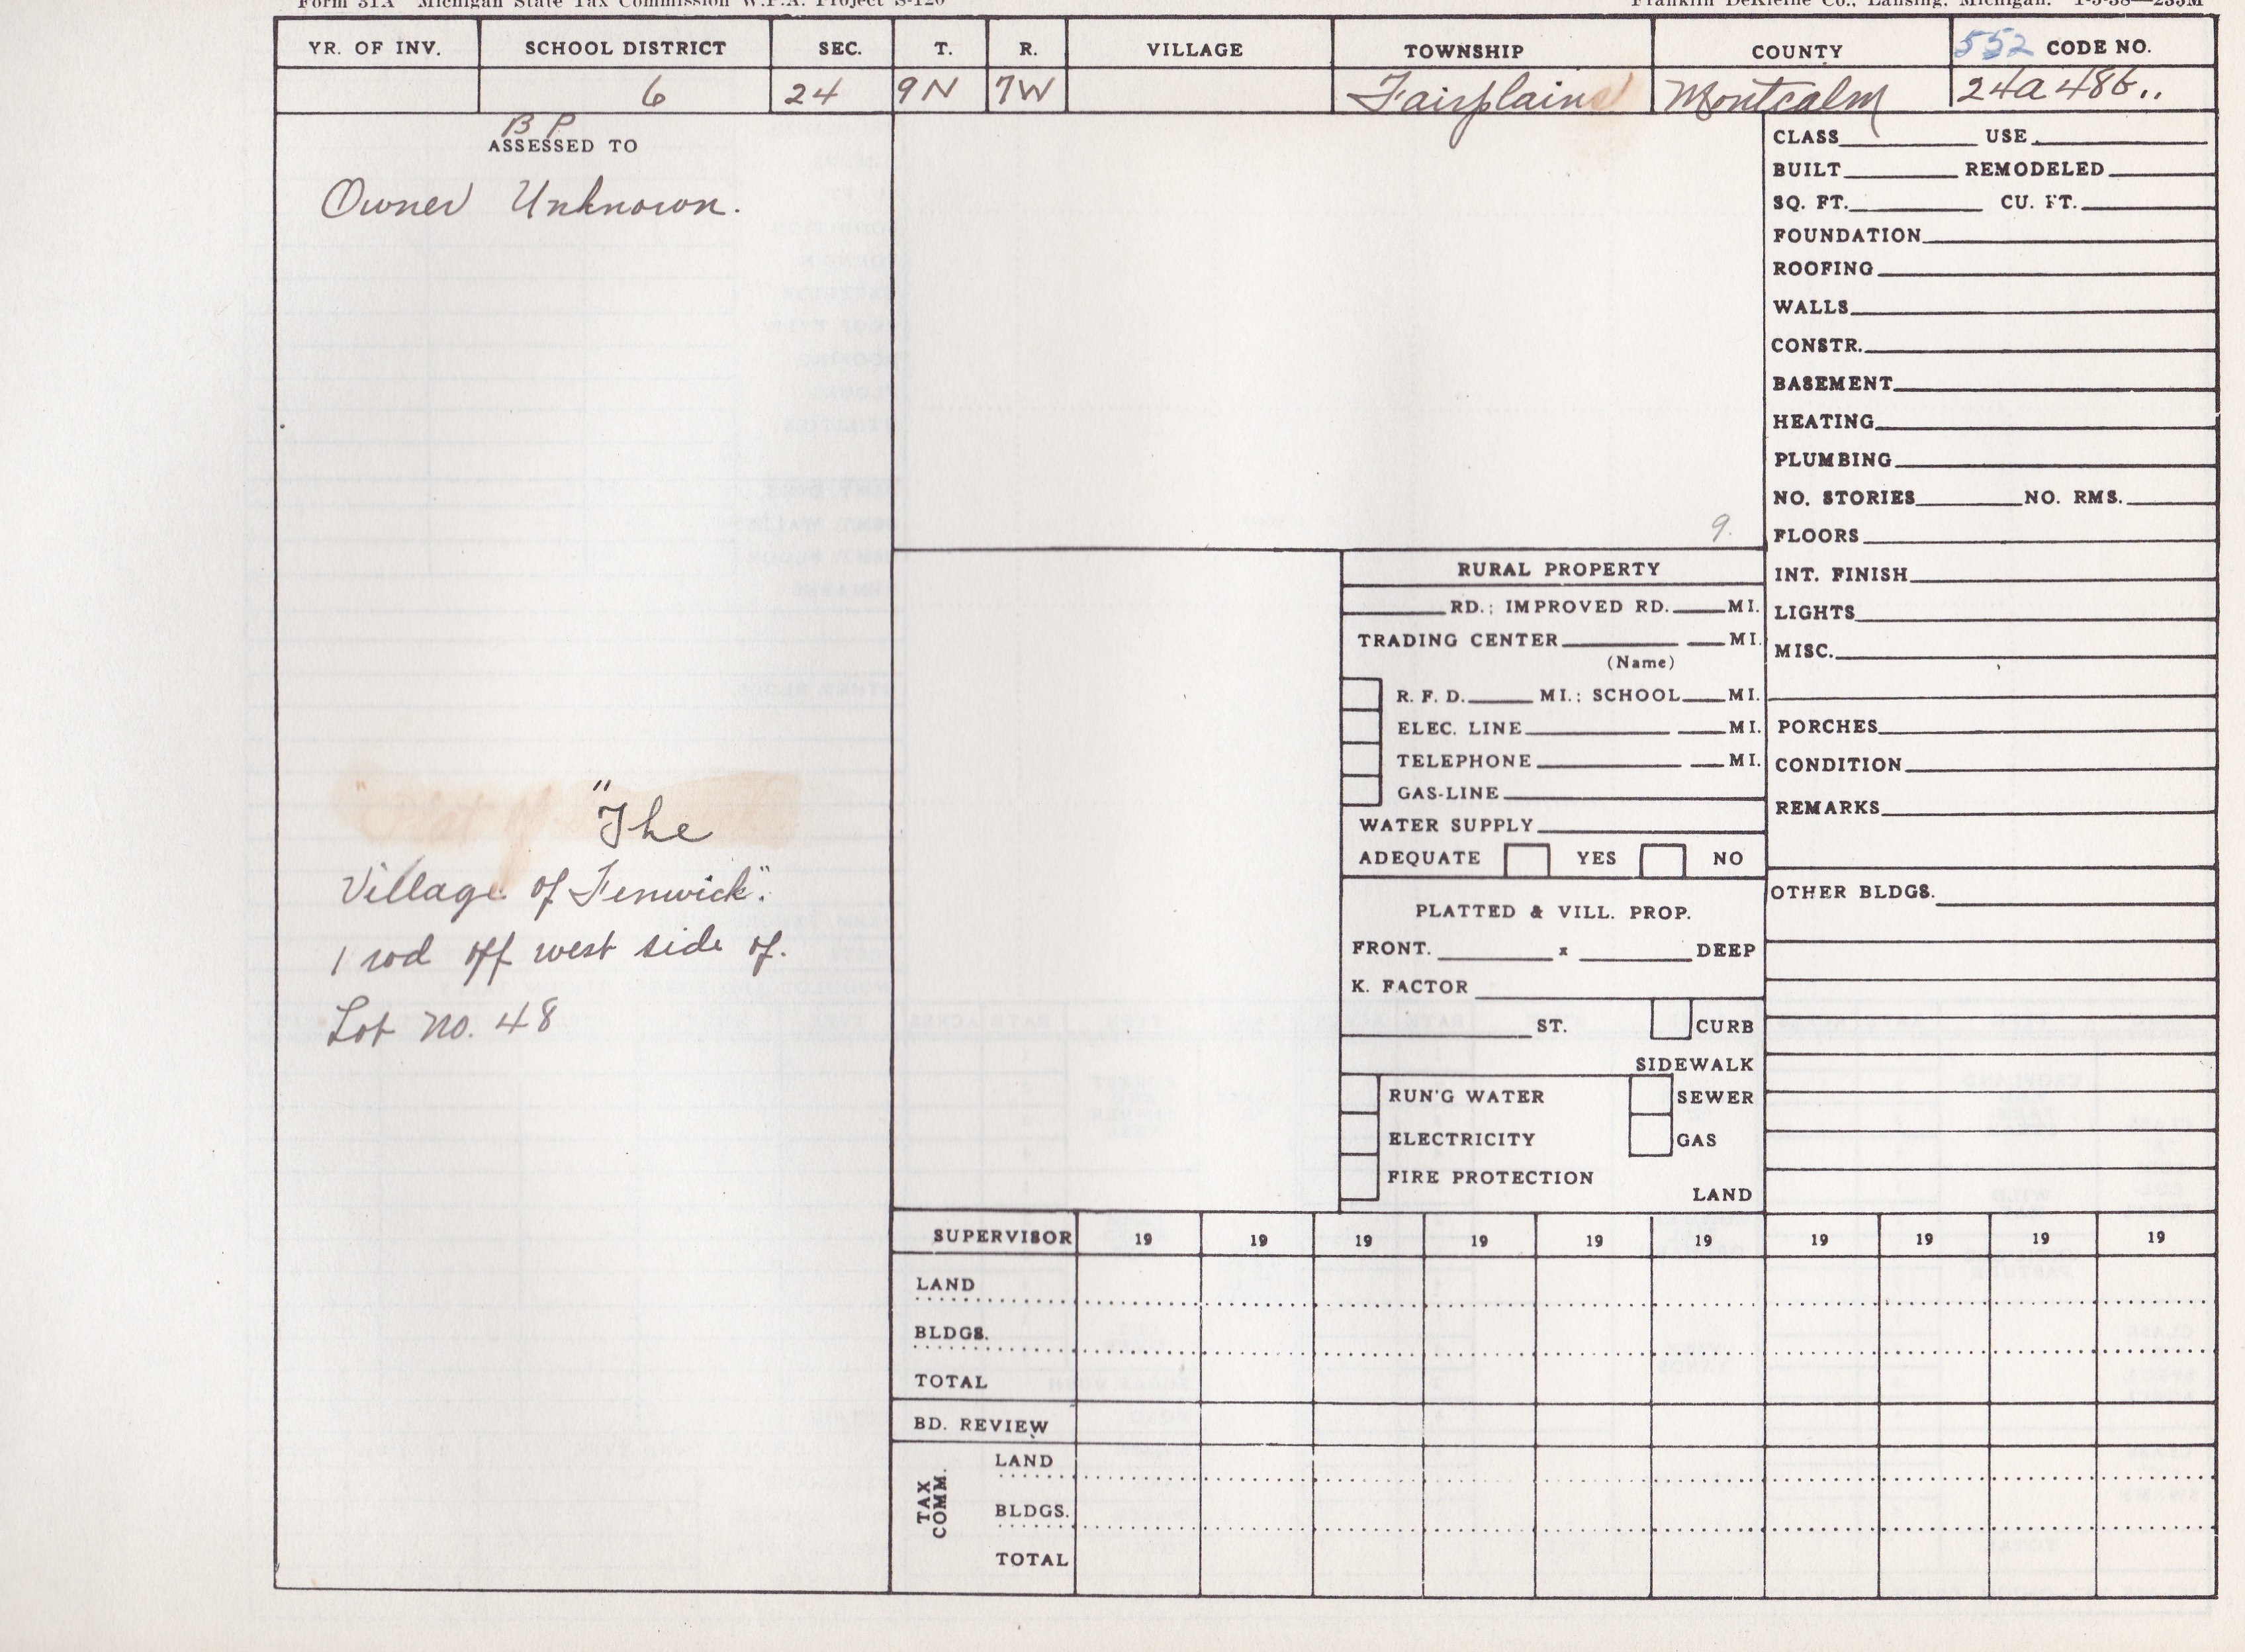 Form 31A Michigan State Tax Commission W.P.A. Project S-120 Franklin DeKleine Co., Lansing, Michigan. 1-5-38—235M
YR. OF INV. SCHOOL DISTRICT SEC. T. R. VILLAGE TOWNSHIP COUNTY 552 CODE NO.
6 24 9N 7W Fairplain Montcalm 24a 486..
B P
ASSESSED TO
Owner Unknown.
"The
Village of Fenwick".
1 rod off west side of.
Lot No. 48
9.
RURAL PROPERTY
RD.; IMPROVED RD. MI.
TRADING CENTER MI.
(Name)
R. F. D. MI.; SCHOOL MI.
ELEC. LINE MI.
TELEPHONE MI.
GAS-LINE
WATER SUPPLY
ADEQUATE YES NO
PLATTED & VILL. PROP.
FRONT. x DEEP
K. FACTOR
ST. CURB
SIDEWALK
RUN'G WATER SEWER
ELECTRICITY GAS
FIRE PROTECTION
LAND
CLASS USE
BUILT REMODELED
SQ. FT. CU. FT.
FOUNDATION
ROOFING
WALLS
CONSTR.
BASEMENT
HEATING
PLUMBING
NO. STORIES NO. RMS.
FLOORS
INT. FINISH
LIGHTS
MISC.
PORCHES
CONDITION
REMARKS
OTHER BLDGS.
SUPERVISOR 19 19 19 19 19 19 19 19 19 19
LAND
BLDGS.
TOTAL
BD. REVIEW
TAX COMM.
LAND
BLDGS.
TOTAL